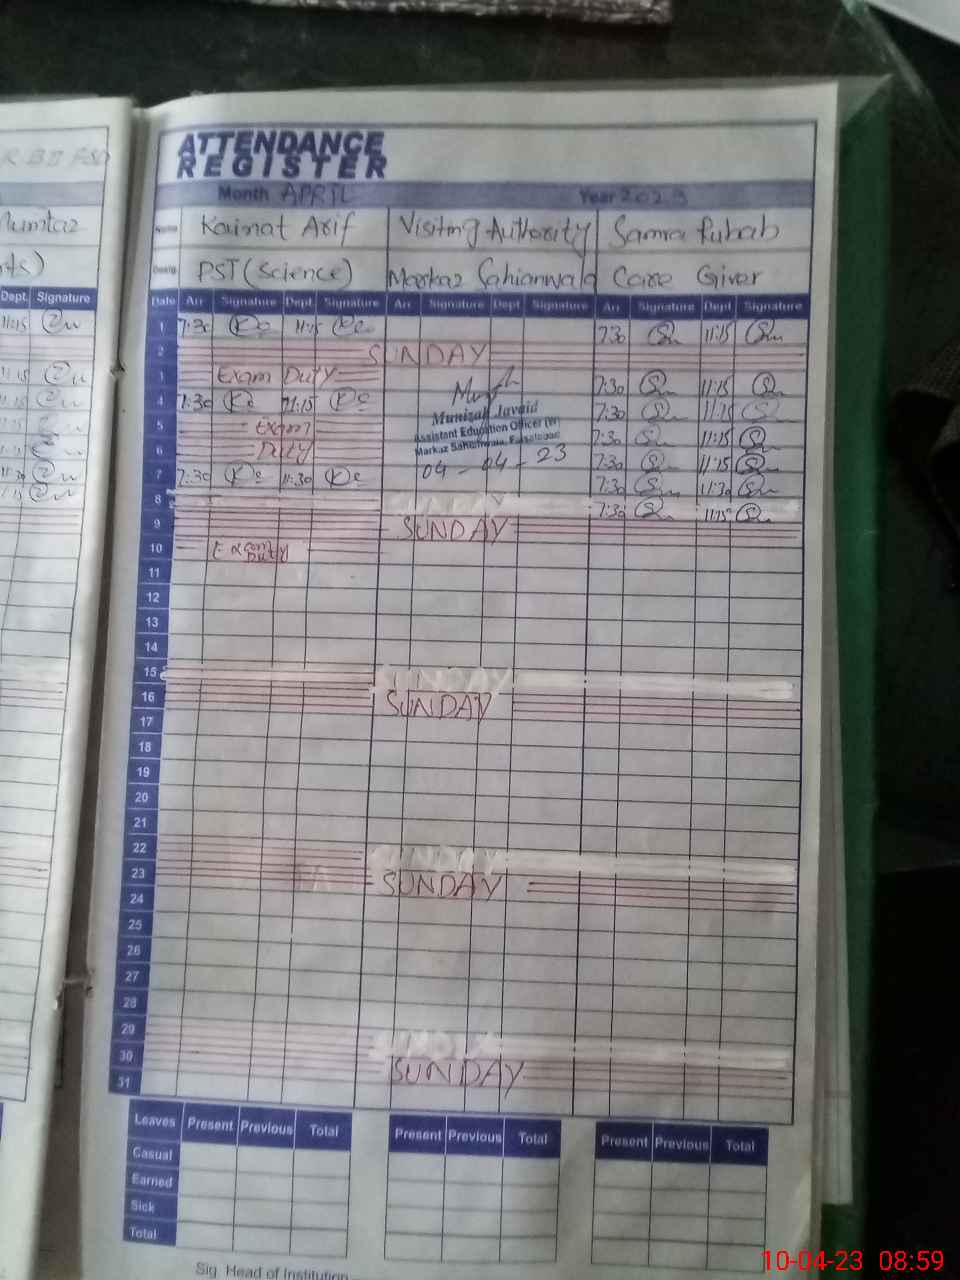 ATTENDANCE
REGISTER
Month APRIL Year 2023
Mumtaz
Name Kainat Arif Visiting Authority Samra Rubab
Desig. PST (Science) Markaz Sahianwala Care Giver
Dept. Signature
Date Arr Signature Dept. Signature Arr Signature Dept Signature Arr Signature Dept Signature
11:15
1 7:30 11:15 7:30 11:15
2 SUNDAY
3 Exam Duty 7:30 11:15
4 7:30 11:15 7:30 11:15
Munizah Javaid
Assistant Education Officer (W)
Markaz Sahianwala, Faisalabad
04-04-23
5 Exam 7:30 11:15
6 DUTY 7:30 11:15
7 7:30 11:30 7:30 11:30
8 SUNDAY 7:30 11:15
9 SUNDAY
10 Exam Duty
11
12
13
14
15 SUNDAY
16 SUNDAY
17
18
19
20
21
22 SUNDAY
23 SUNDAY
24
25
26
27
28
29 SUNDAY
30 SUNDAY
31
Leaves Present Previous Total Present Previous Total Present Previous Total
Casual
Earned
Sick
Total
Sig. Head of Institution
10-04-23 08:59